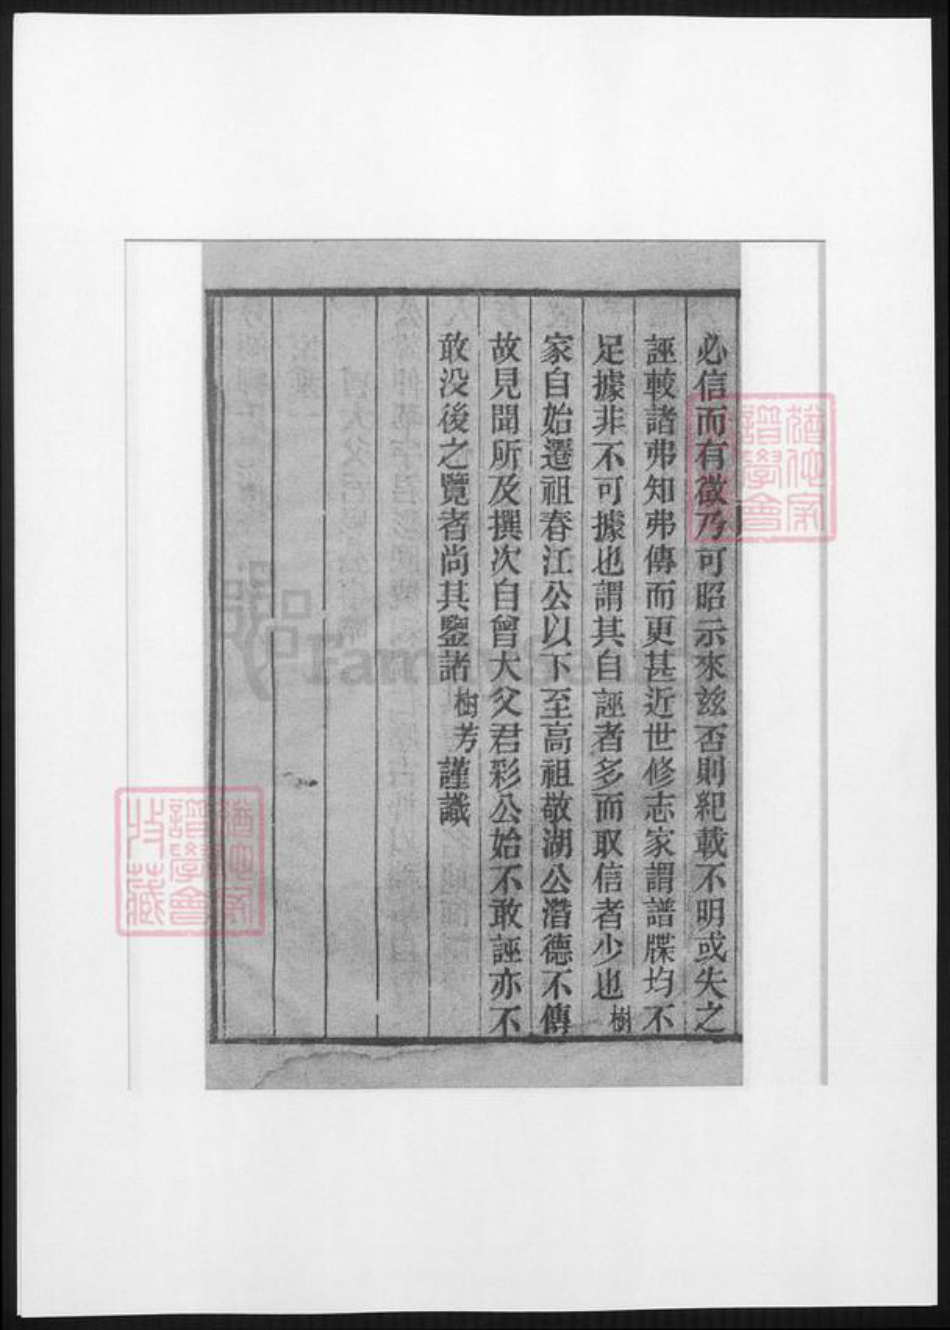 必信而有徵乃可昭示來玆否則紀載不明或失之
誣較諸弗知弗傳而更甚近世修志家謂譜牒均不
足據非不可據也謂其自誣者多而取信者少也樹
家自始遷祖春江公以下至高祖敬湖公潛德不傳
故見聞所及撰次自曾大父君彩公始不敢誣亦不
敢没後之覽者尚其鑒諸樹芳謹識